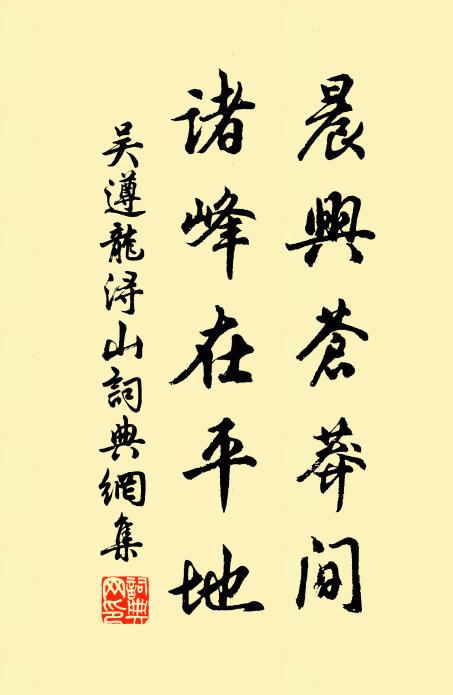 晨興蒼莽間
諸峰在平地
吴遵龍浔山詞典網集
詞典网印